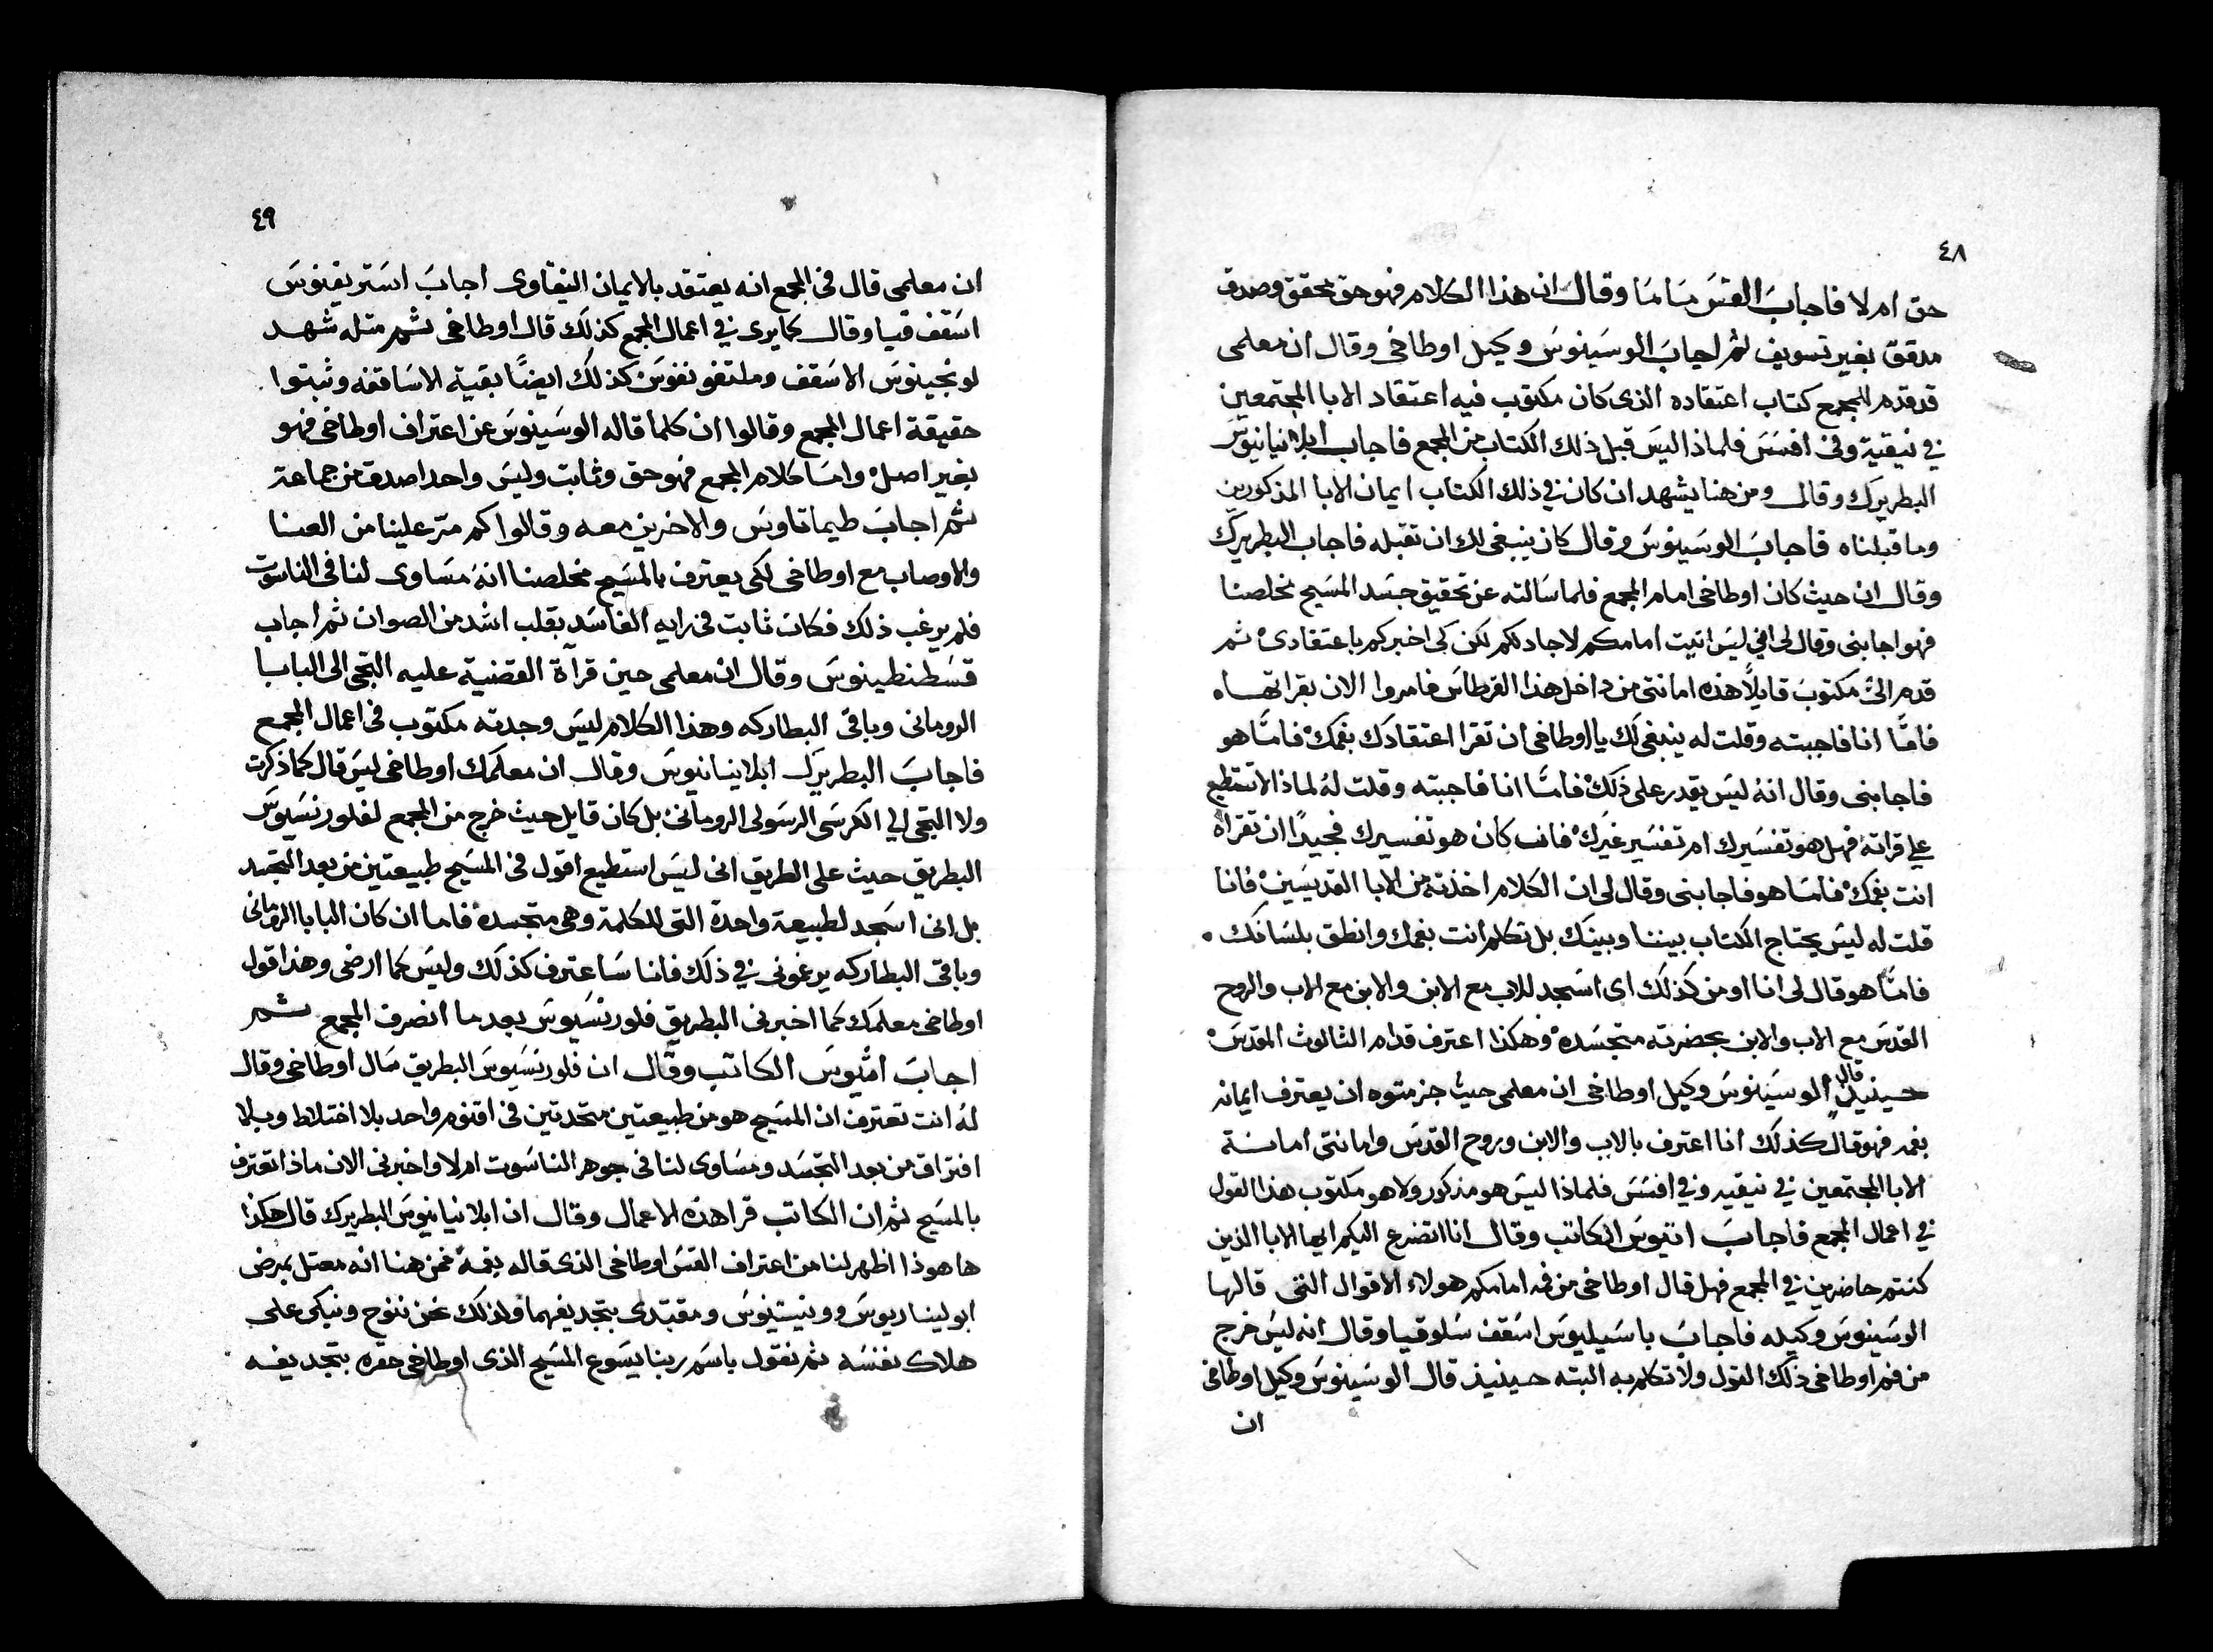 ٤٨
حق ام لا فاجاب القس ماما وقال ان هذا الكلام فهو حق محقق وصدق
مدقق بغير تسويف ثم اجاب الوسينوس وكيل اوطاخي وقال ان معلمي
قد قدم للمجمع كتاب اعتقاده الذى كان مكتوب فيه اعتقاد الابا المجتمعين
في نيقية وفى افسس فلماذا ليس قبل ذلك الكتاب من المجمع فاجاب ابلانيانيوس
البطريرك وقال ومن هنا يشهد ان كان في ذلك الكتاب ايمان الابا المذكورين
وما قبلناه فاجاب الوسينوس وقال كان ينبغي لك ان تقبله فاجاب البطريرك
وقال ان حيث كان اوطاخي امام المجمع فلما سالته عن تحقيق جسد المسيح مخلصنا
فهو اجابنى وقال لى اني ليس اتيت امامكم لاجادلكم لكن كى اخبركم باعتقادى ثم
قدم الىّ مكتوب قايلاً هذه امانتى من داخل هذا القرطاس فامروا الان بقراتها
فامّا انا فاجبته وقلت له ينبغى لك يا اوطاخى ان تقرا اعتقادك بفمك فامّا هو
فاجابنى وقال انه ليس يقدر على ذلك فامّا انا فاجبته وقلت له لماذا لا تستطيع
على قراته فهل هو تفسيرك ام تفسير غيرك فان كان هو تفسيرك فجيدًا ان تقراه
انت بفمك فامّا هو فاجابنى وقال لى ان الكلام اخذته من الابا القديسين فانا
قلت له ليس يحتاج الكتاب بيننا وبينك بل تكلم انت بفمك وانطق بلسانك
فامّا هو قال لى انا اومن كذلك اى اسجد للاب مع الابن والابن مع الاب والروح
القدس مع الاب والابن بحضرته متجسده وهكذا اعترف قدام الثالوث المقدس
حينيذ قال الوسينوس وكيل اوطاخى ان معلمى حيث جزمتوه ان يعترف ايمانه
بفمه فهو قال كذلك انا اعترف بالاب والابن وروح القدس وامانتى امانة
الابا المجتمعين في نيقيه وفي افسس فلماذا ليس هو مذكور ولا هو مكتوب هذا القول
في اعمال المجمع فاجاب اتيوس الكاتب وقال انا اتضرع اليكم ايها الابا الذين
كنتم حاضرين في المجمع فهل قال اوطاخى من فمه امامكم هولاء الاقوال التى قالها
الوسينوس وكيله فاجاب باسيليوس اسقف سلوقيا وقال انه ليس خرج
من فم اوطاخى ذلك القول ولا تكلم به البته حينيذ قال الوسينوس وكيل اوطاخى
ان
٤٩
ان معلمى قال فى المجمع انه يعتقد بالايمان النيقاوى اجاب استريفنوس
اسقف قيا وقال كما يرى في اعمال المجمع كذلك قال اوطاخى ثم مثله شهد
لونجينوس الاسقف وملتفو نفوس كذلك ايضًا بقية الاساقفه وثبتوا
حقيقة اعمال المجمع وقالوا ان كلما قاله الوسينوس عن اعتراف اوطاخى فهو
بغير اصل وامّا كلام المجمع فهو حق وثابت وليس واحد اصدق من جماعة
ثم اجاب طيماتاوس والاخرين معه وقالوا كم مرّ علينا من العنا
والاوصاب مع اوطاخى لكى يعترف بالمسيح مخلصنا انه مساوى لنا فى الناسوت
فلم يرغب ذلك فكان ثابت فى رايه الفاسد بقلب اشد من الصوان ثم اجاب
قسطنطينوس وقال ان معلمى حين قرآة القضية عليه التجى الى البابا
الرومانى وباقى البطاركه وهذا الكلام ليس وجدته مكتوب فى اعمال المجمع
فاجاب البطريرك ابلانيانيوس وقال ان معلمك اوطاخى ليس قال كما ذكرت
ولا التجى الى الكرسى الرسولى الرومانى بل كان قايل حيث خرج من المجمع لفلورنسيوس
البطريق حيث على الطريق انى ليس استطيع اقول فى المسيح طبيعتين من بعد التجسد
بل انى اسجد لطبيعة واحدة التى للكلمة وهى متجسدة فاما ان كان البابا الرومانى
وباقى البطاركه يرغمونى في ذلك فانا ساعترف كذلك وليس كما ارضى وهذا قول
اوطاخى معلمك كما اخبرنى البطريق فلورنسيوس بعد ما انصرف المجمع ثم
اجاب امتيوس الكاتب وقال ان فلورنسيوس البطريق سال اوطاخى وقال
له انت تعترف ان المسيح هو من طبيعتين متحدتين فى اقنوم واحد بلا اختلاط وبلا
افتراق من بعد التجسد ومساوى لنا فى جوهر الناسوت ام لا واخبرنى الان ماذا تعترف
بالمسيح ثم ان الكاتب قرا هذه الاعمال وقال ان ابلانيانيوس البطريرك قال هكذا
ها هوذا اظهر لنا من اعتراف القس اوطاخى الذى قاله بفمه فمن هنا انه معتل بمرض
ابوليناريوس وونيستينوس ومقتدى بتجديفهما ولذلك نحن ننوح ونبكى على
هلاك نفسه ثم نقول باسم ربنا يسوع المسيح الذى اوطاخى حقره بتجديفه